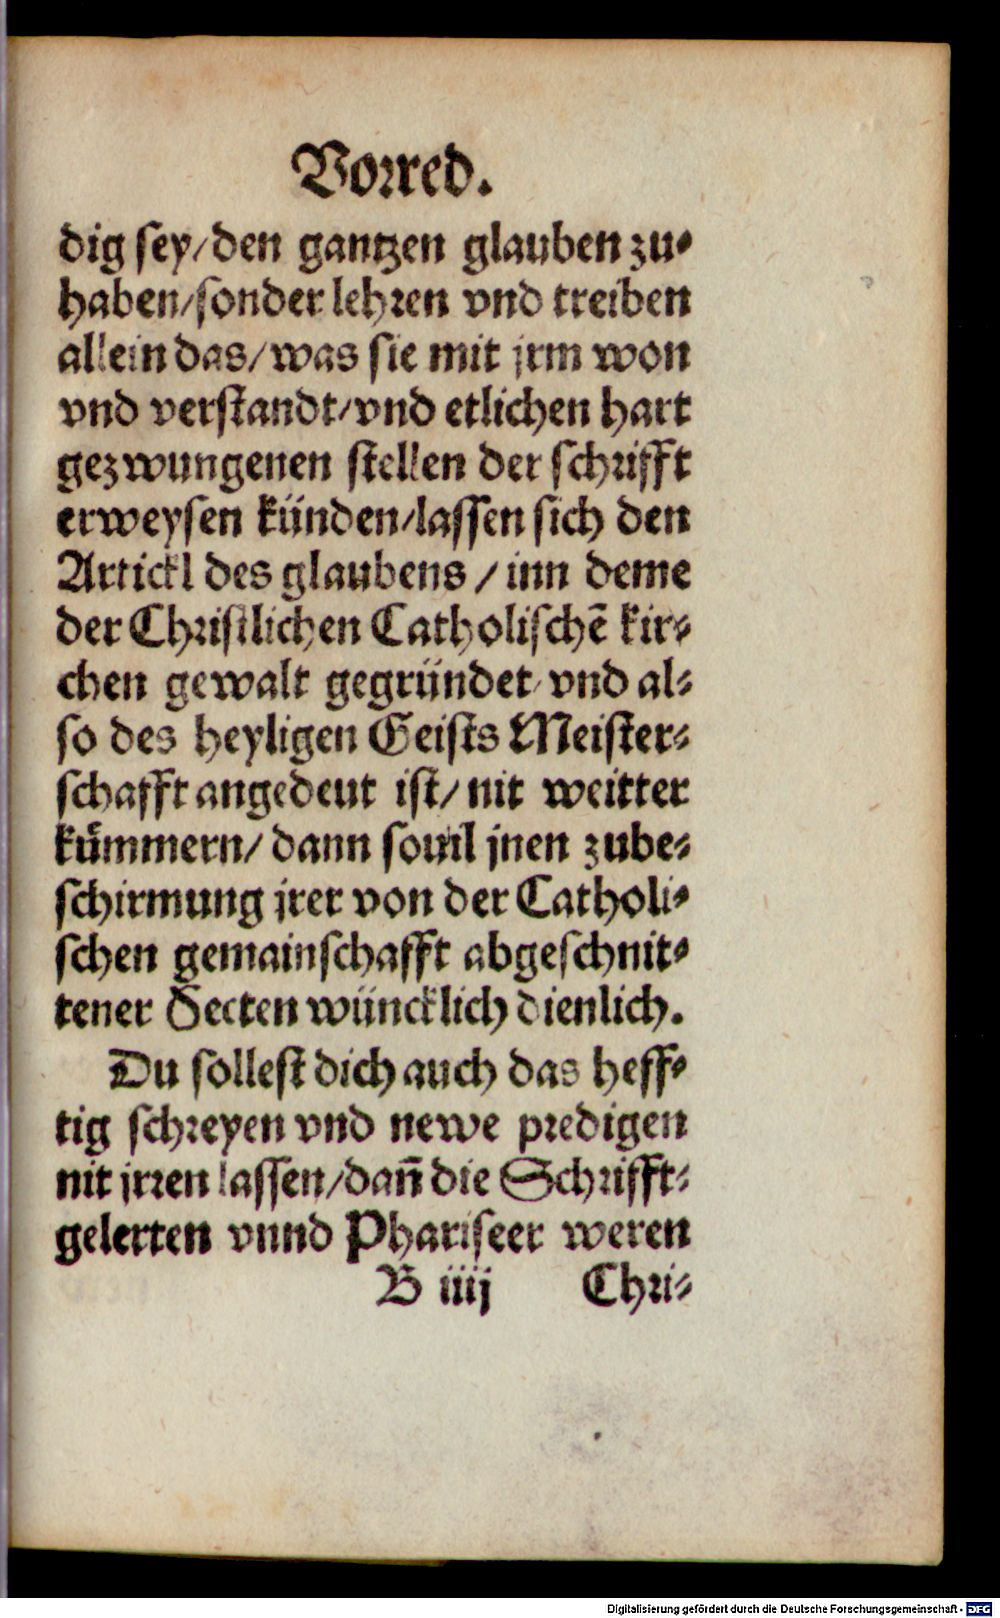 Vorred.
dig sey/den gantzen glauben zu-
haben/sonder lehren vnd treiben
allein das/was sie mit jrm won
vnd verstandt/vnd etlichen hart
gezwungenen stellen der schrifft
erweysen künden/lassen sich den
Artickl des glaubens/inn deme
der Christlichen Catholischē kir-
chen gewalt gegründet/vnd al-
so des heyligen Geists Meister-
schafft angedeut ist/nit weitter
kümmern/dann souil jnen zube-
schirmung jrer von der Catholi-
schen gemainschafft abgeschnit-
tener Secten wüncklich dienlich.
Du sollest dich auch das heff-
tig schreyen vnd newe predigen
nit jrren lassen/dañ die Schrifft-
gelerten vnnd Phariseer weren
B iiij Chri-
Digitalisierung gefördert durch die Deutsche Forschungsgemeinschaft - DFG